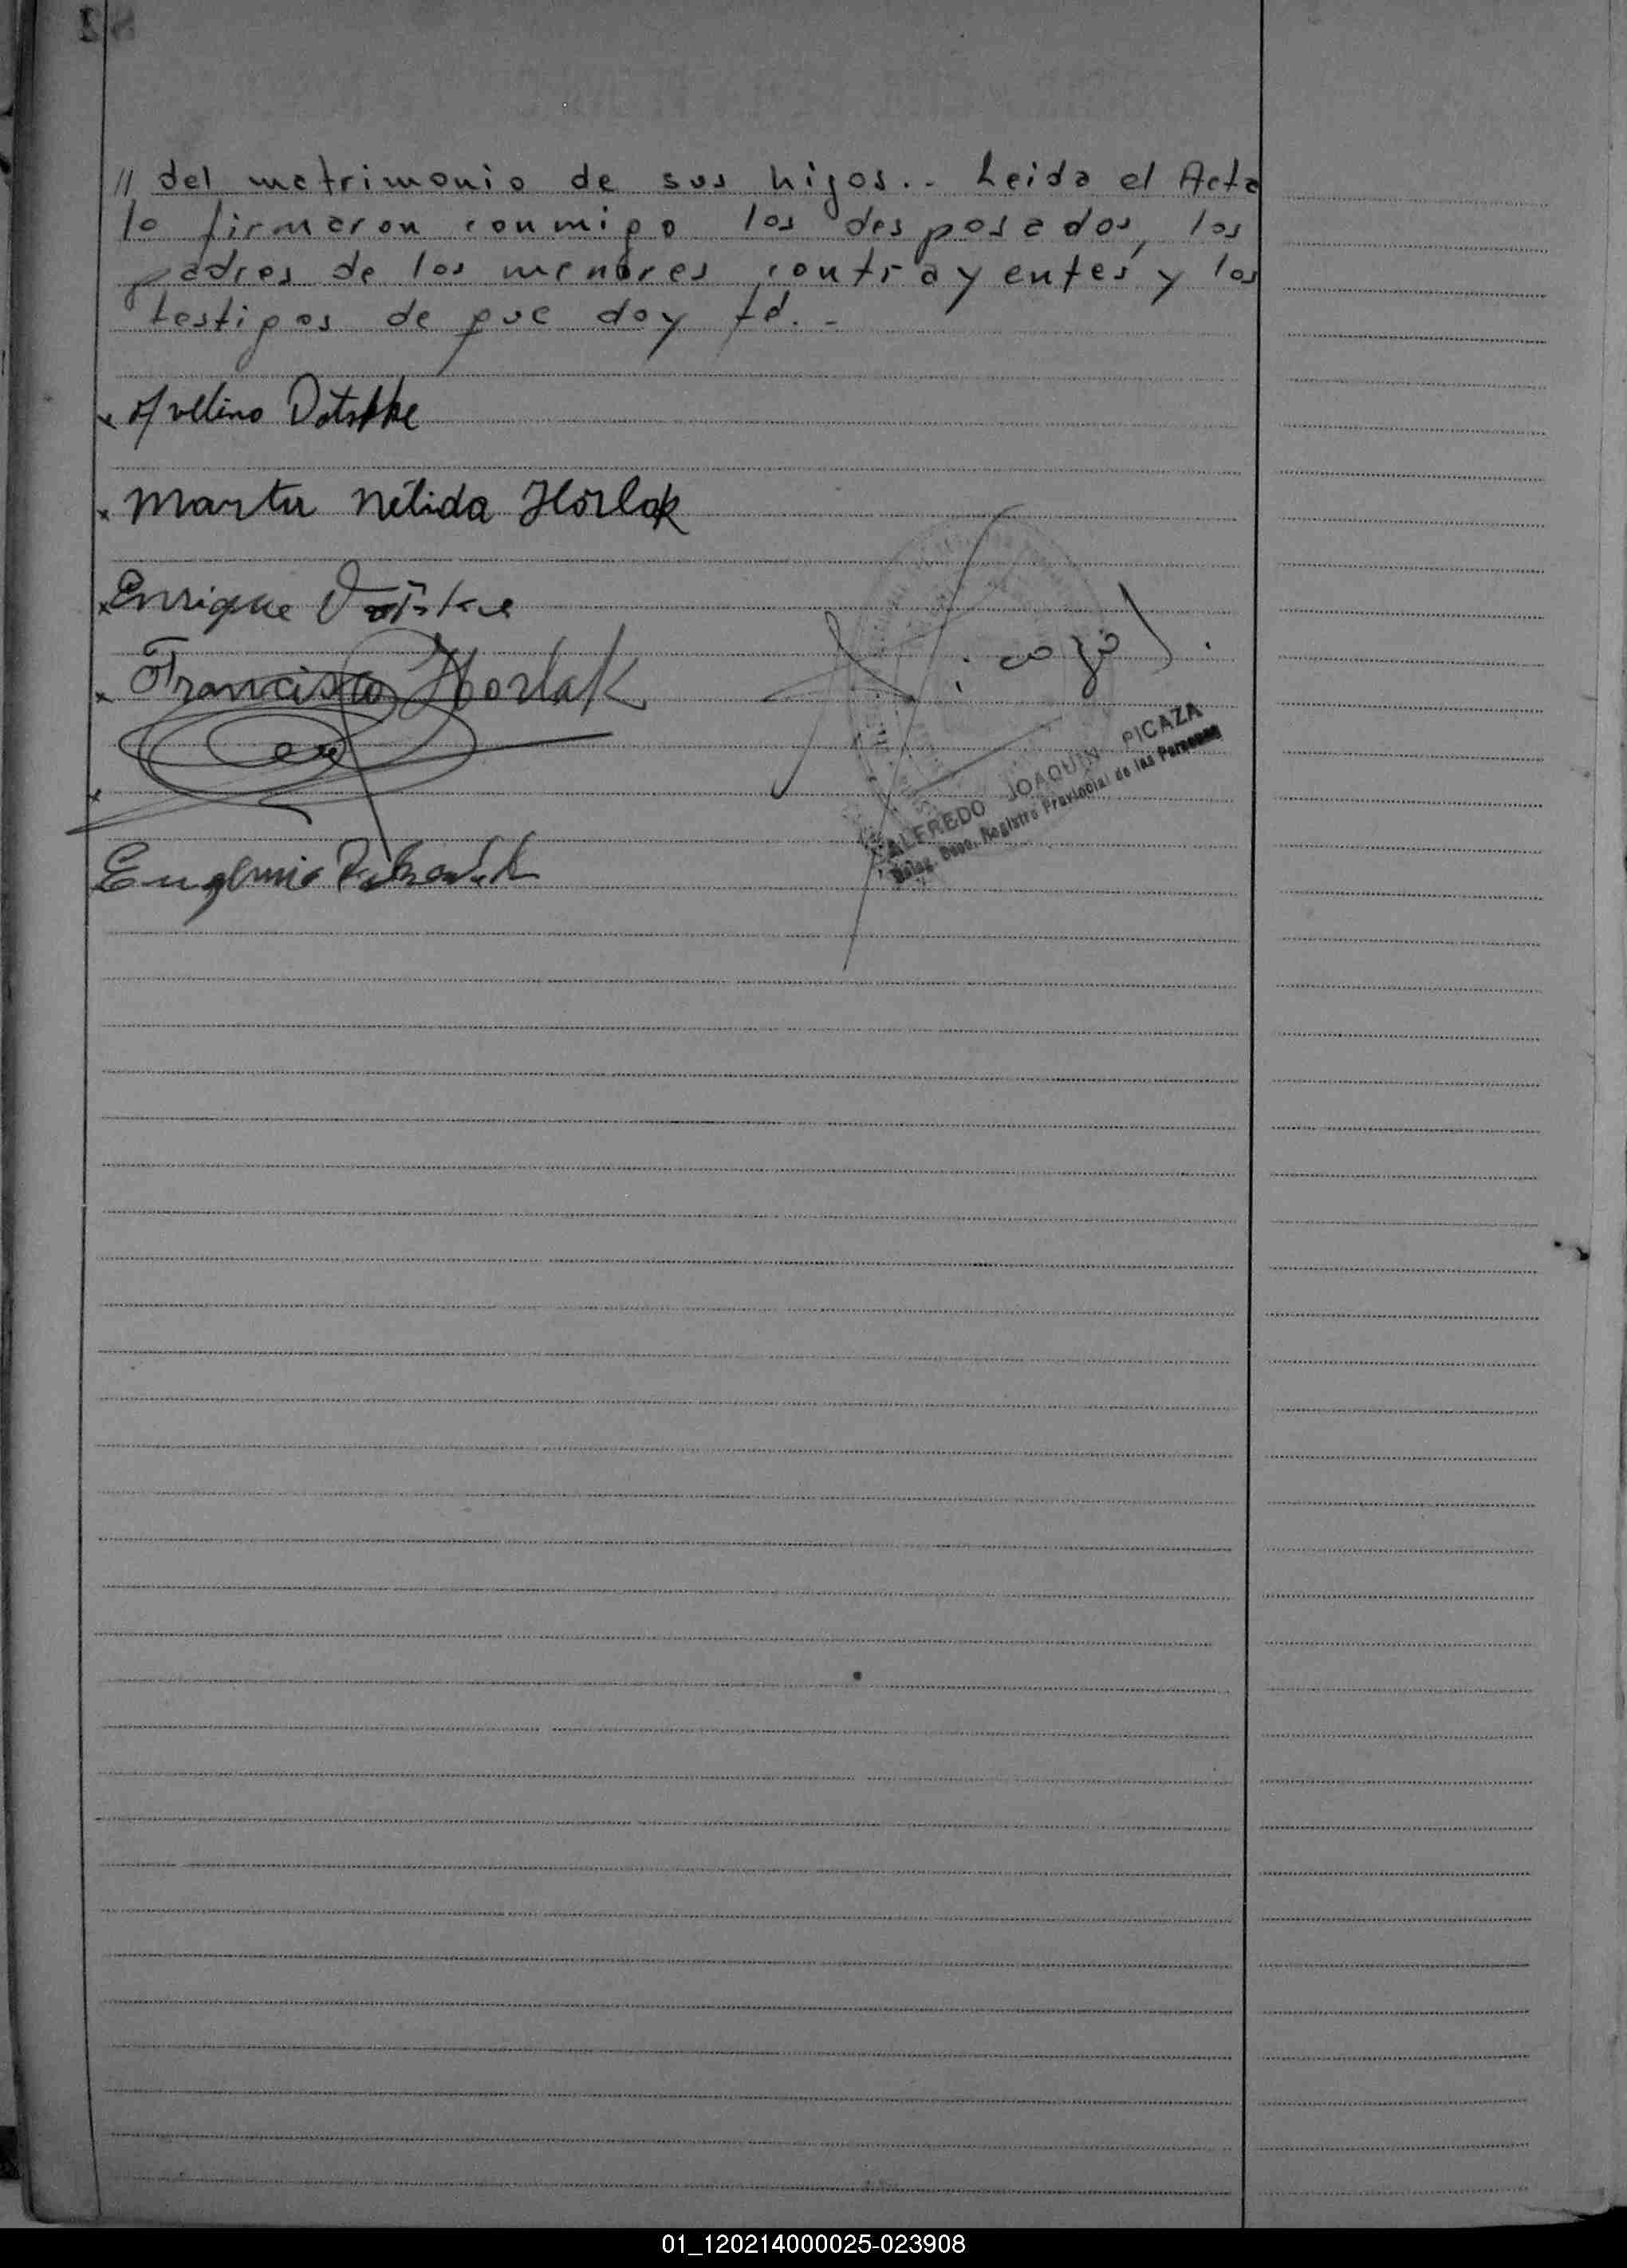 // del matrimonio de sus hijos.- Leida el Acta
la firmaron conmigo los desposados, los
padres de los menores contrayentes y los
testigos de que doy fé.-
x Avelino Dotschke
x Marta Nélida Horlak
x Enrique
x Francisco Horlak
x
Eugenio
ALFREDO JOAQUIN PICAZA
Deleg. Dpto. Registro Provincial de las Personas
01_120214000025-023908